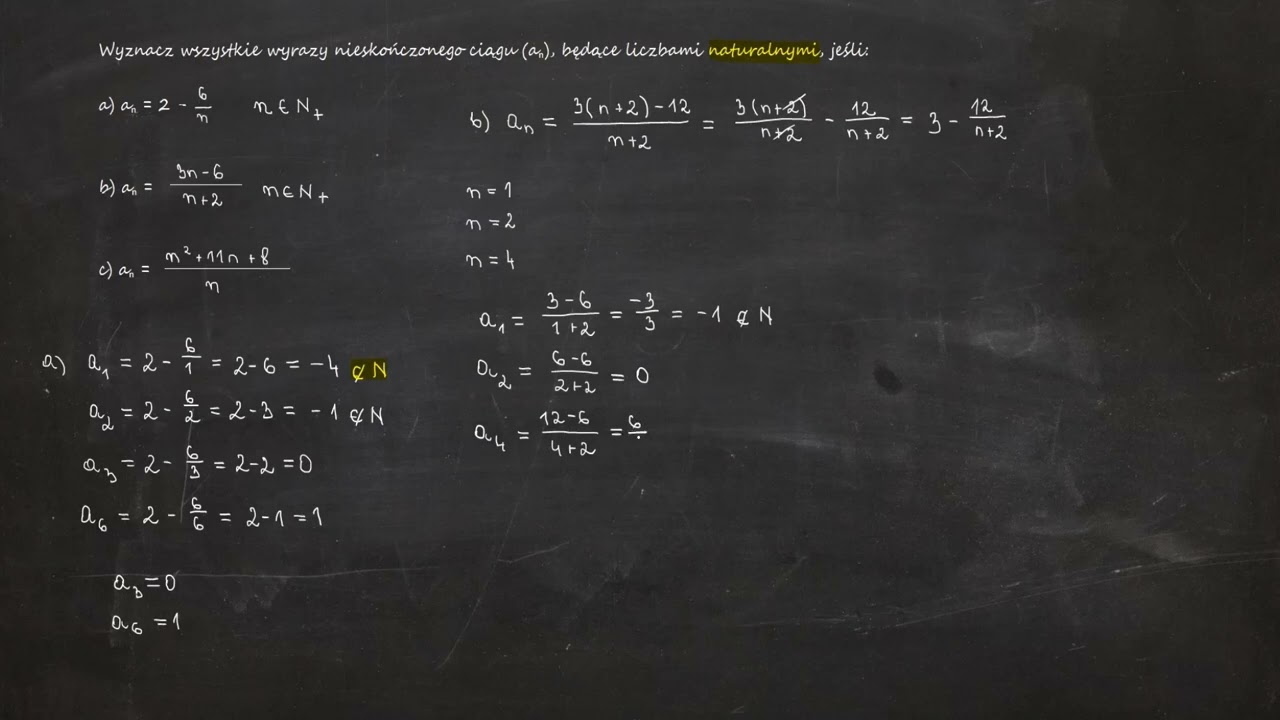 Wyznacz wszystkie wyrazy nieskończonego ciągu (aₙ), będące liczbami naturalnymi, jeśli:
a) aₙ = 2 - 6/n n ∈ N₊
b) aₙ = (3n-6)/(n+2) n ∈ N₊
c) aₙ = (n²+11n+8)/n
a) a₁ = 2 - 6/1 = 2-6 = -4 ∉ N
a₂ = 2 - 6/2 = 2-3 = -1 ∉ N
a₃ = 2 - 6/3 = 2-2 = 0
a₆ = 2 - 6/6 = 2-1 = 1
a₃ = 0
a₆ = 1
b) aₙ = (3(n+2)-12)/(n+2) = 3(n+2)/(n+2) - 12/(n+2) = 3 - 12/(n+2)
n = 1
n = 2
n = 4
a₁ = (3-6)/(1+2) = -3/3 = -1 ∉ N
a₂ = (6-6)/(2+2) = 0
a₄ = (12-6)/(4+2) = 6/